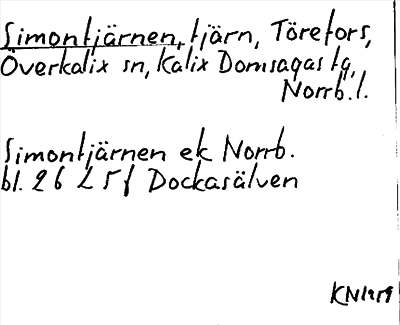 Simontjärnen, tjärn, Törefors,
Överkalix sn, Kalix Domsagas tg,
Norrb. l.
Simontjärnen ek Norrb.
bl. 26 L 5f Dockasälven
KN1959